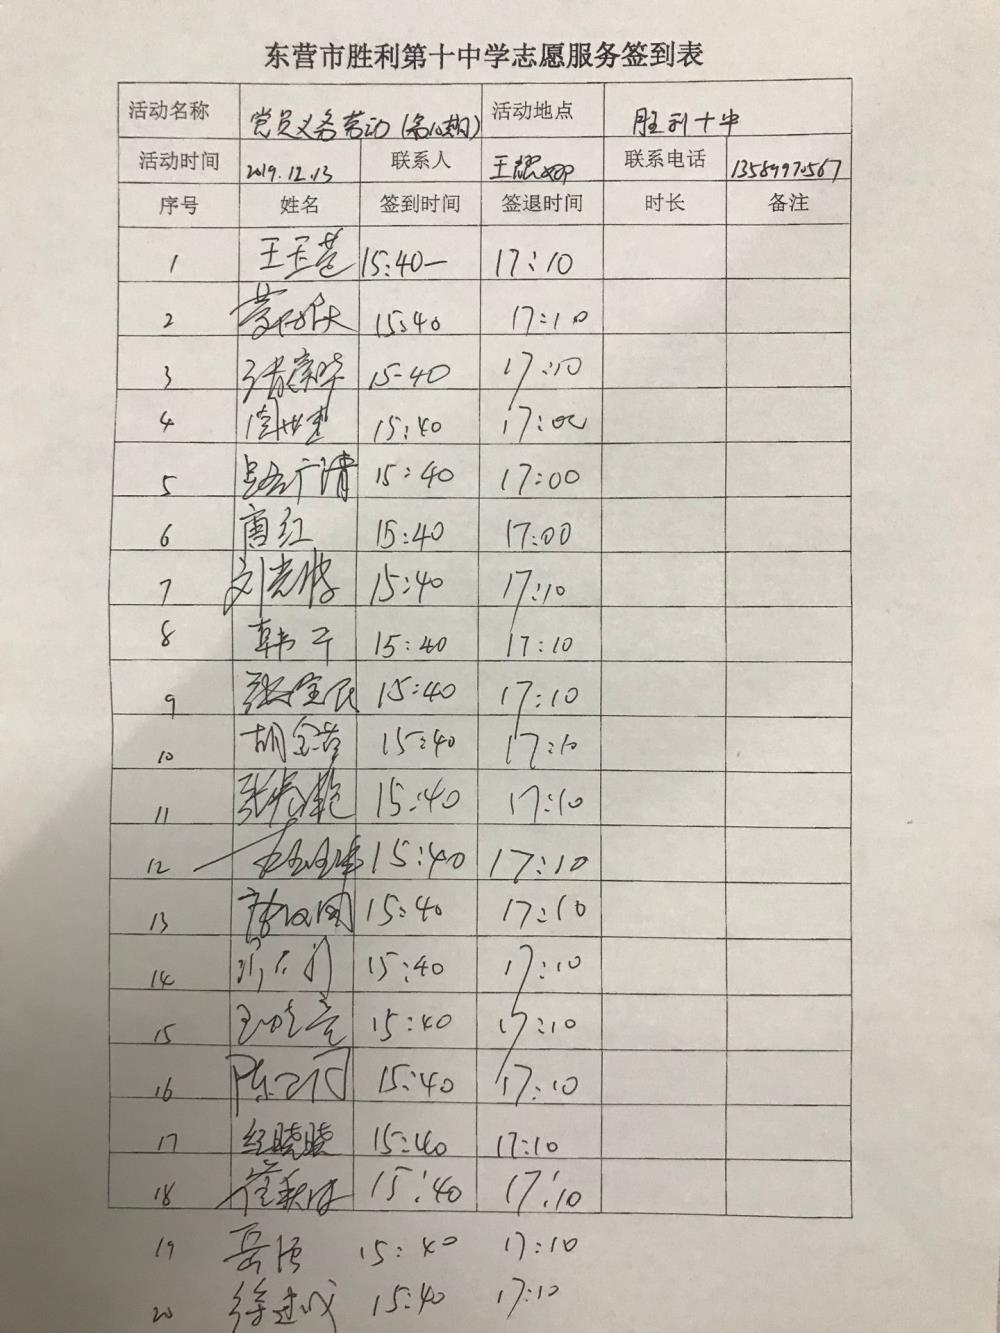 东营市胜利第十中学志愿服务签到表
活动名称 党员义务劳动 活动地点 胜利十中
活动时间 2019.12.13 联系人 王 联系电话 13589970567
序号 姓名 签到时间 签退时间 时长 备注
1 王玉苍 15:40 17:10
2 15:40 17:10
3 15:40 17:10
4 15:40 17:00
5 路广清 15:40 17:00
6 唐红 15:40 17:00
7 刘光 15:40 17:10
8 韩 15:40 17:10
9 张宝民 15:40 17:10
10 胡金 15:40 17:10
11 张 15:40 17:10
12 15:40 17:10
13 15:40 17:10
14 15:40 17:10
15 王晓亮 15:40 17:10
16 陈 15:40 17:10
17 纪晓晓 15:40 17:10
18 崔 15:40 17:10
19 岳 15:40 17:10
20 徐建成 15:40 17:10